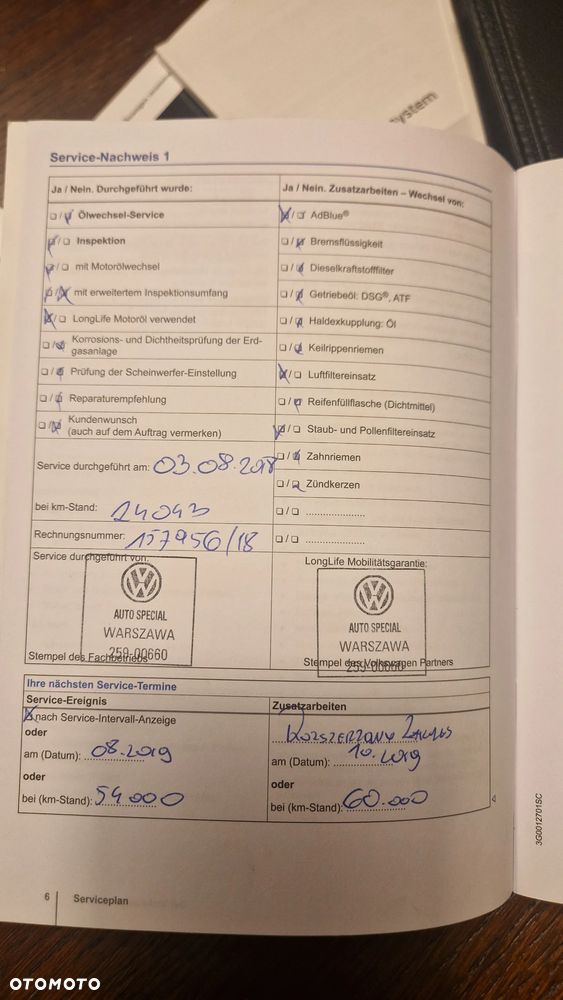 System
Service-Nachweis 1
Ja / Nein. Durchgeführt wurde:
Ja / Nein. Zusatzarbeiten – Wechsel von:
Ölwechsel-Service
AdBlue®
Inspektion
Bremsflüssigkeit
mit Motorölwechsel
Dieselkraftstofffilter
mit erweitertem Inspektionsumfang
Getriebeöl: DSG®, ATF
LongLife Motoröl verwendet
Haldexkupplung: Öl
Korrosions- und Dichtheitsprüfung der Erd-
gasanlage
Keilrippenriemen
Prüfung der Scheinwerfer-Einstellung
Luftfiltereinsatz
Reparaturempfehlung
Reifenfüllflasche (Dichtmittel)
Kundenwunsch
(auch auf dem Auftrag vermerken)
Staub- und Pollenfiltereinsatz
Zahnriemen
Service durchgeführt am: 03.08.2018
Zündkerzen
bei km-Stand: 24043
Rechnungsnummer: 157956/18
Service durchgeführt von:
LongLife Mobilitätsgarantie:
AUTO SPECIAL
WARSZAWA
259-00660
Stempel des Fachbetriebs
AUTO SPECIAL
WARSZAWA
259-00660
Stempel des Volkswagen Partners
Ihre nächsten Service-Termine
Service-Ereignis
Zusatzarbeiten
nach Service-Intervall-Anzeige
oder
Rozszerzony Zakres
am (Datum): 08.2019
am (Datum): 10.2019
oder
oder
bei (km-Stand): 54.000
bei (km-Stand): 60.000
3G0012701SC
6
Serviceplan
OTOMOTO